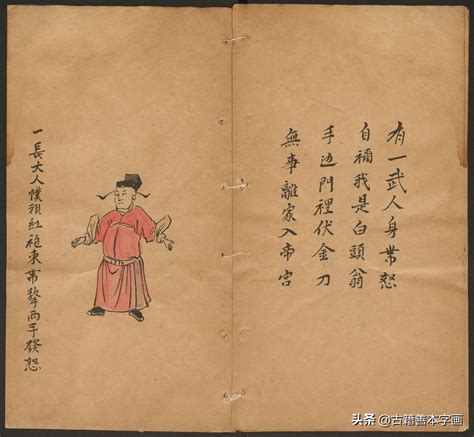 有一武人身帶怒
自稱我是白頭翁
手边門裡伏金刀
無事離家入帝宮
一長大人幞頭紅袍束帶擎两手發怒
头条 @古籍善本字画